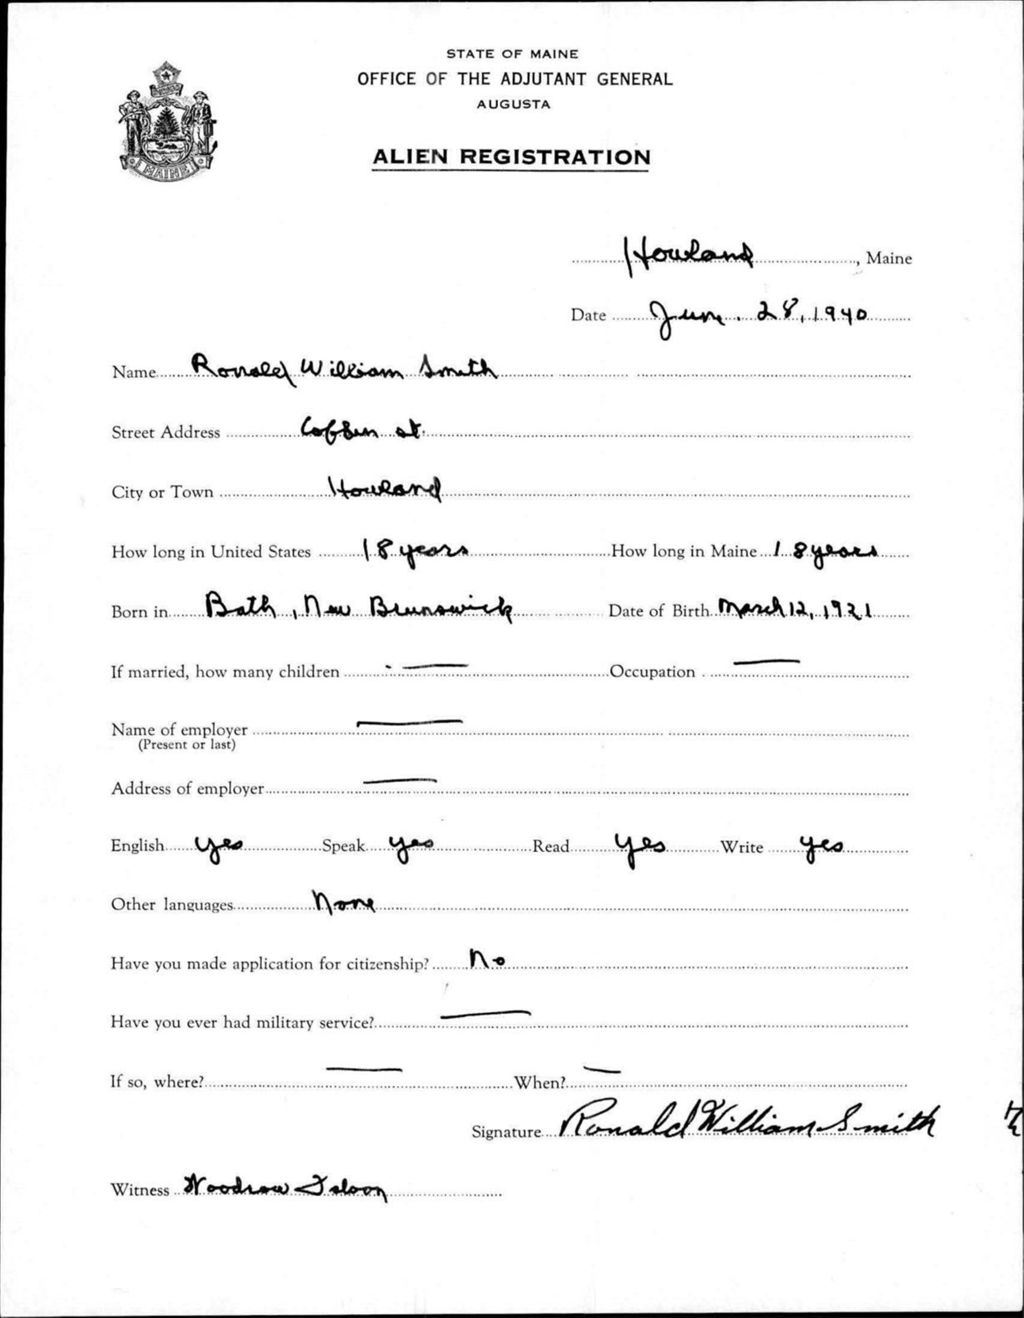 STATE OF MAINE
OFFICE OF THE ADJUTANT GENERAL
AUGUSTA
ALIEN REGISTRATION
MAINE
Howland, Maine
Date June. 28, 1940
Name Ronald William Smith
Street Address Coffin st.
City or Town Howland
How long in United States 18 years How long in Maine 18 years
Born in Bath, New Brunswick Date of Birth March 12, 1921
If married, how many children — Occupation —
Name of employer —
(Present or last)
Address of employer —
English yes Speak yes Read yes Write yes
Other languages None
Have you made application for citizenship? No
Have you ever had military service? —
If so, where? — When? —
Signature Ronald William Smith
Witness Woodrow